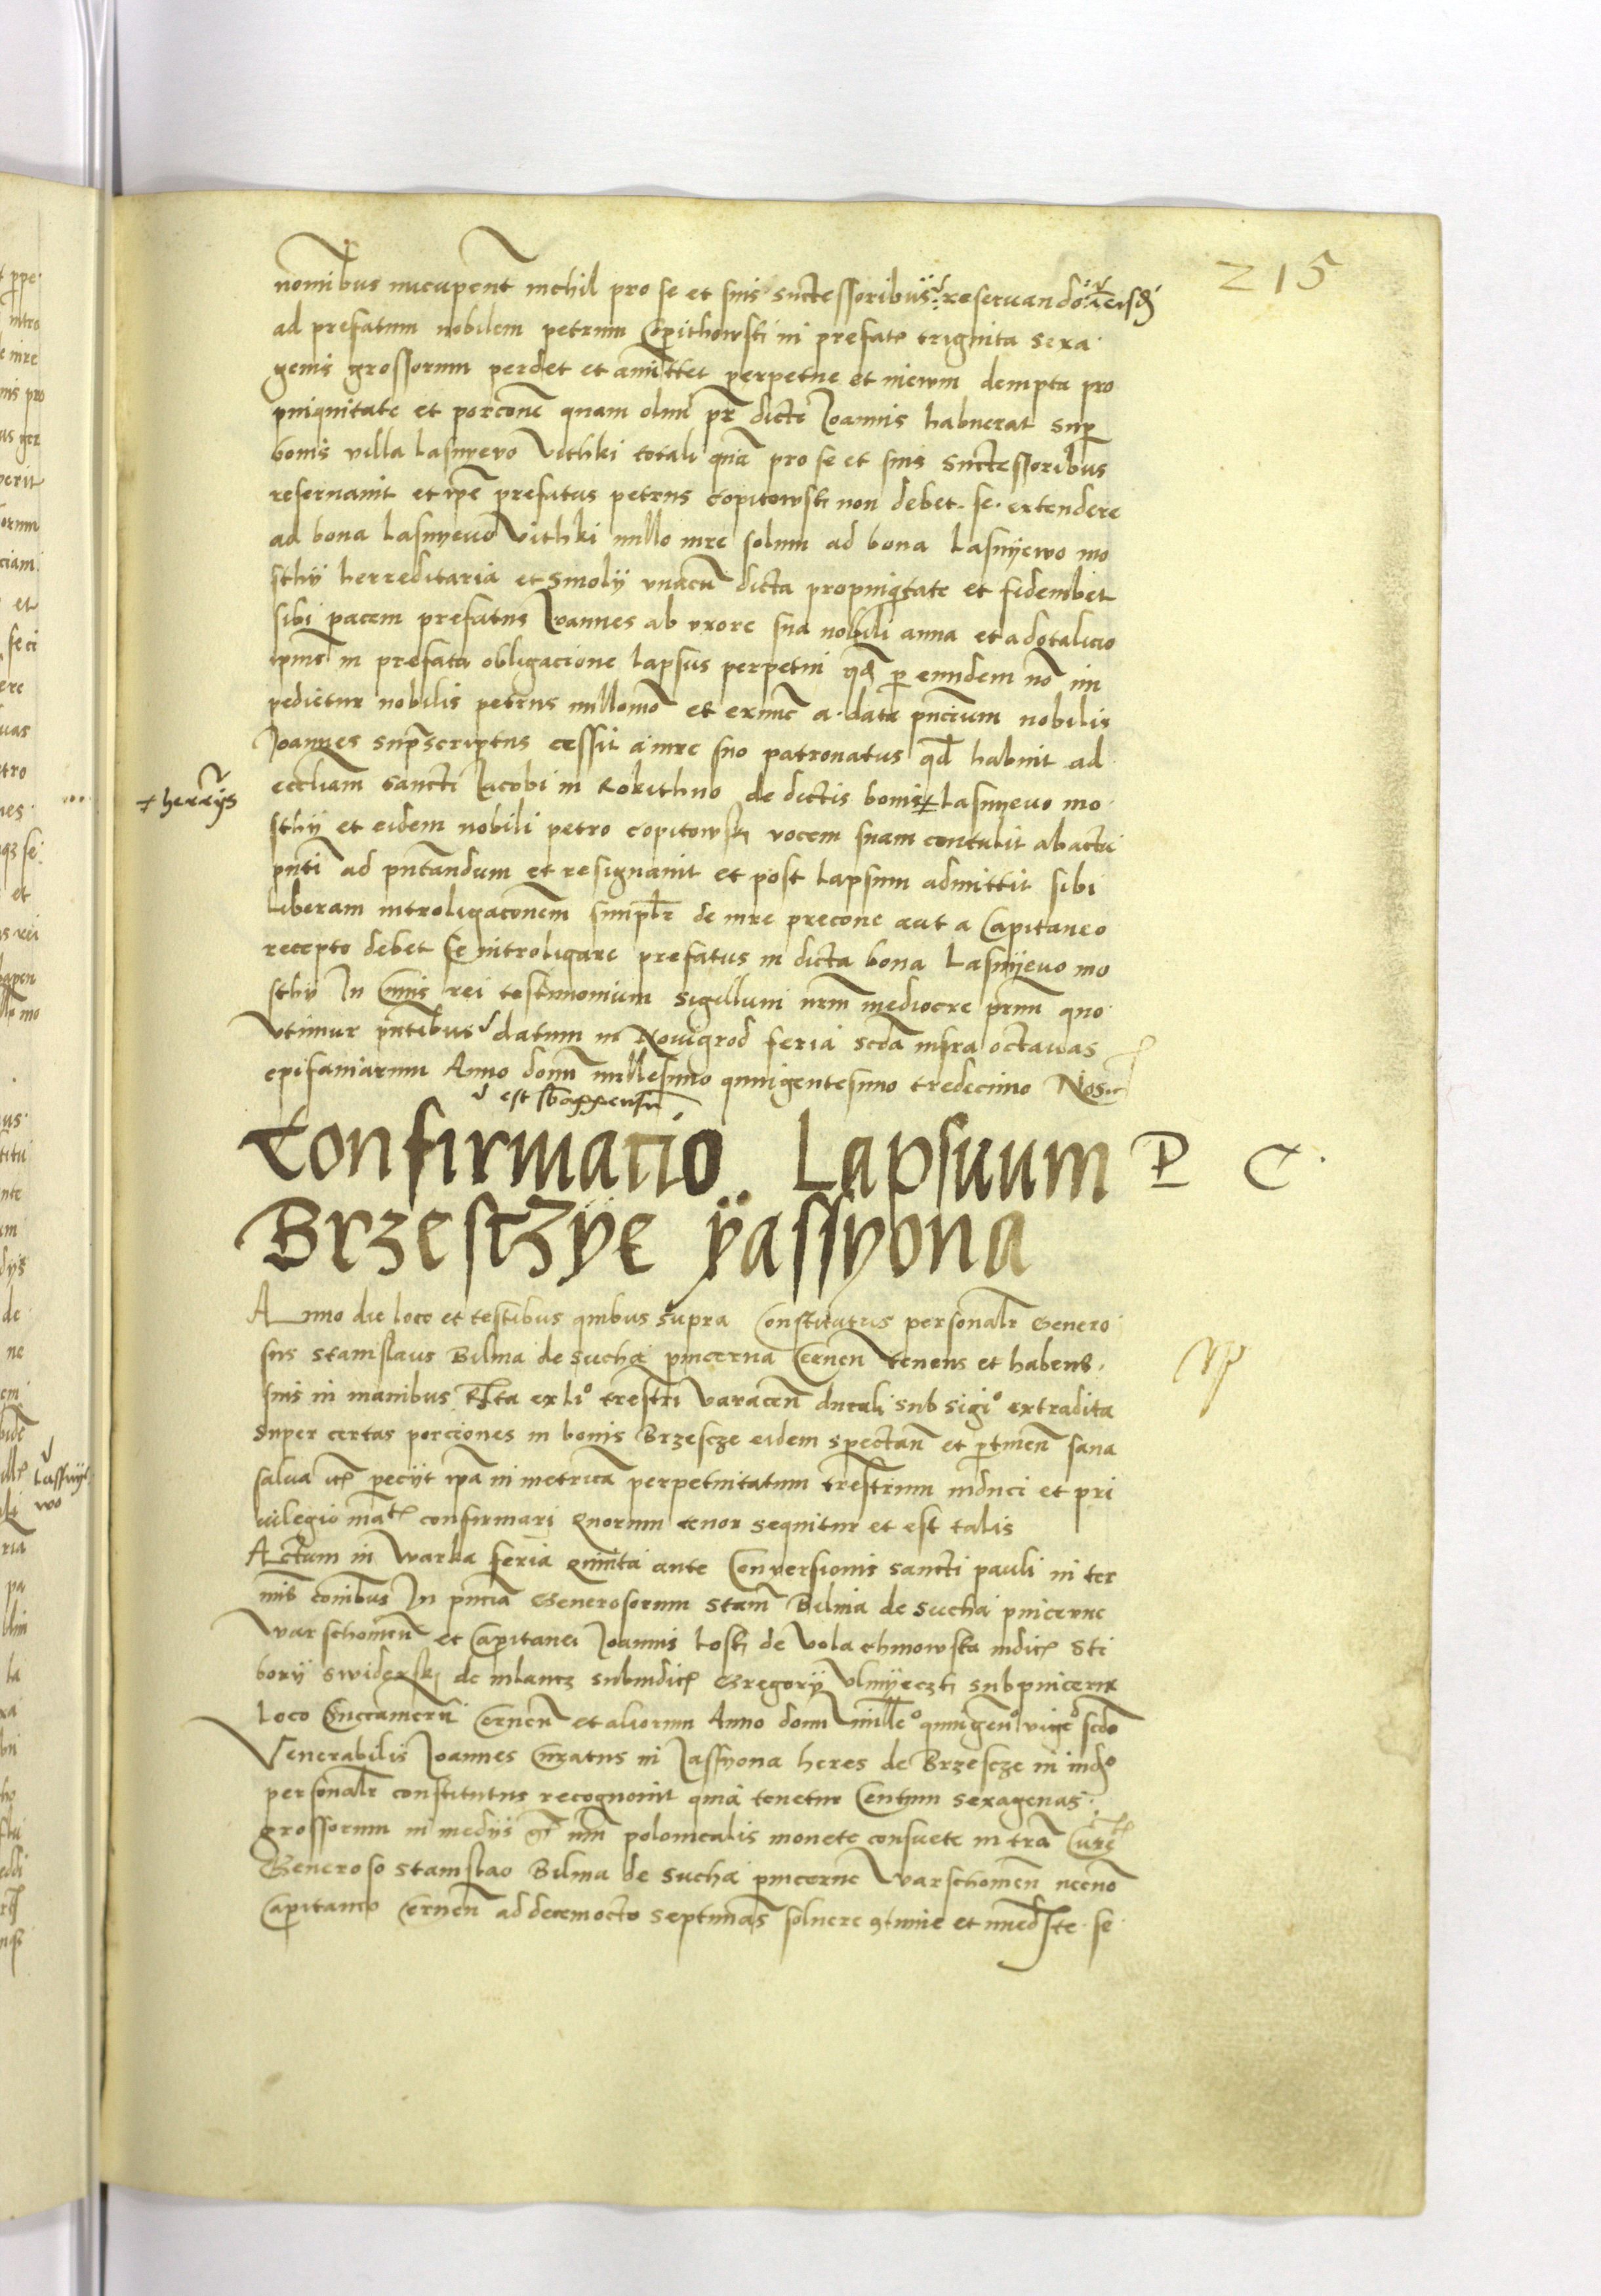 215
nomibus nucupent nichil pro se et suis successoribus reservando in eisd
ad prefatum nobilem petrum Copithowski in prefate triginta sexa
genis grossorum perdet et amittet perpetue et in ewm dempta pro
pinquitate et porcone quam olim pr dicti Joannis habuerat sup
bonis villa lasnyewo Vithki totali qua pro se et suis successoribus
reservavit et ipe prefatus petrus copitowski non debet se extendere
ad bona Lasnyewo Vithki nullo iure solum ad bona Lasnyewo mo
sthy herreditaria et Smoly unacu dicta propinqtate et fideiubet
sibi pacem prefatus Joannes ab uxore sua nobili anna et a dotalicio
ipius in prefata obligacione lapsus perpetui qd p eundem no im
pedietur nobilis petrus nullomo et exnunc a data pncium nobilis
Joannes suprascriptus cessit a iure suo patronatus qd habuit ad
+ herrys
eccliam sancti Jacobi in Rokithno de dictis bonis + Lasnyewo mo
sthy et eidem nobili petro copitowski vocem suam contulit ab actu
pnti ad pntandum et resignavit et post lapsum admittit sibi
liberam introligaconem simplr de iure precone aut a Capitaneo
recepto debet se introligare prefatus in dicta bona Lasnyewo mo
sthy In Cuius rei testimonium sigillum nrm mediocre prnm quo
utimur pntibus datum in Nowigrod feria scda infra octawas
epifaniarum Anno domi millesimo quingentesimo tredecimo Nos
est subappensu
Confirmacio Lapsuum P C
Brzesczye yassyona
Anno die loco et testibus quibus supra Constitutus personalr Genero
sus stanislaus Bilina de sucha pincerna Cernen tenens et habens
suis in manibus Rta ex lio trestri Varacen ducali sub sigio extradita
super certas porciones in bonis Brzescze eidem spectan et ptinen sana
salva petiit ipa in metrica perpetuitatum trestrium induci et pri
vilegio confirmari Quorum tenor sequitur et est talis
Actum in Warka feria Quinta ante Conversionis sancti pauli in ter
mis conibus In pncia Generosorum Stani Bilina de Sucha pincerne
Warschowien et Capitanei Joannis Loski de Vola chinowska iudice Sti
bory Swiderski de mlancz subiudice Gregory Ulnyeczki subpincerne
Loco Succamerii Cernen et aliorum Anno domi mille quingen vige scdo
Venerabilis Joannes Curatus in Jassyona heres de Brzescze in iudo
personalr constitutus recognovit quia tenetur Centum sexagenas
grossorum in medys gr nmi polonicalis monete consuete in tra Curre
Generoso stanislao Bilina de sucha pincerne Warschowien necno
Capitaneo Cernen ad decemocto septimas solvere et se